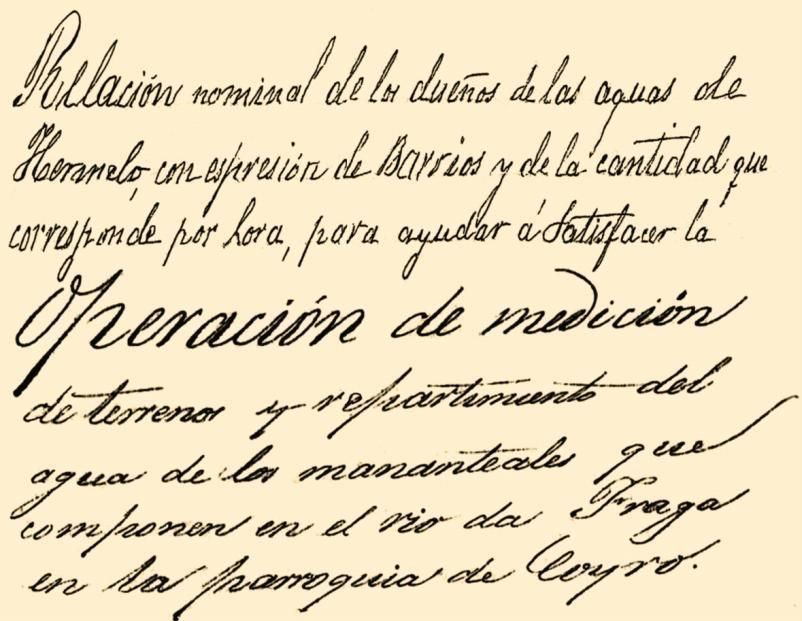 Relación nominal de los dueños de las aguas de
Hermelo, con espresión de Barrios y de la cantidad que
corresponde por hora, para ayudar á satisfacer la
Operación de medición
de terrenos y repartimiento del
agua de los mananteales que
componen en el rio da Fraga
en la parroquia de Coyro.